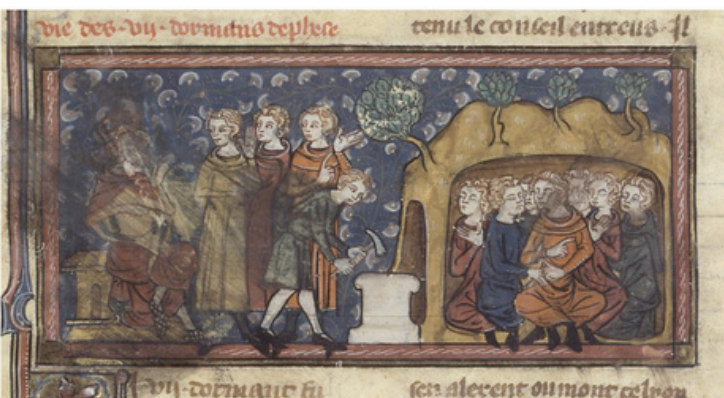 vie des .vij. dormans dephese
tenu le conseil entreus. Il
vij. dormant fu
sen alerent ou mont celyon